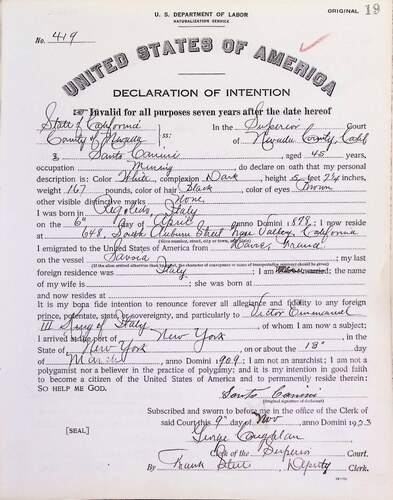 U. S. DEPARTMENT OF LABOR
NATURALIZATION SERVICE
ORIGINAL 19
No. 419
UNITED STATES OF AMERICA
DECLARATION OF INTENTION
Invalid for all purposes seven years after the date hereof
State of California
County of Nevada ss: In the Superior Court of Nevada County, Calif
I, Santo Canini, aged 45 years,
occupation Mining, do declare on oath that my personal
description is: Color White, complexion Dark, height 5 feet inches,
weight 167 pounds, color of hair Black, color of eyes Brown
other visible distinctive marks None
I was born in Italy
on the 6th day of April, anno Domini 1878; I now reside
at 648, South Auburn Street, Grass Valley, California
(Give number, street, city or town, and State)
I emigrated to the United States of America from Havre, France
on the vessel Savoia; my last
(If the alien arrived otherwise than by vessel, the character of conveyance or name of transportation company should be given)
foreign residence was Italy; I am married; the name
of my wife is; she was born at
and now resides at
It is my bona fide intention to renounce forever all allegiance and fidelity to any foreign
prince, potentate, state, or sovereignty, and particularly to Victor Emmanuel
III King of Italy, of whom I am now a subject;
I arrived at the port of New York, in the
State of New York, on or about the 13th day
of March, anno Domini 1909; I am not an anarchist; I am not a
polygamist nor a believer in the practice of polygamy; and it is my intention in good faith
to become a citizen of the United States of America and to permanently reside therein:
SO HELP ME GOD.
Santo Canini
(Original signature of declarant)
Subscribed and sworn to before me in the office of the Clerk of
said Court this 9th day of Nov, anno Domini 1923
[SEAL]
George Coughlan
Clerk of the Superior Court.
By Frank Steel, Deputy Clerk.